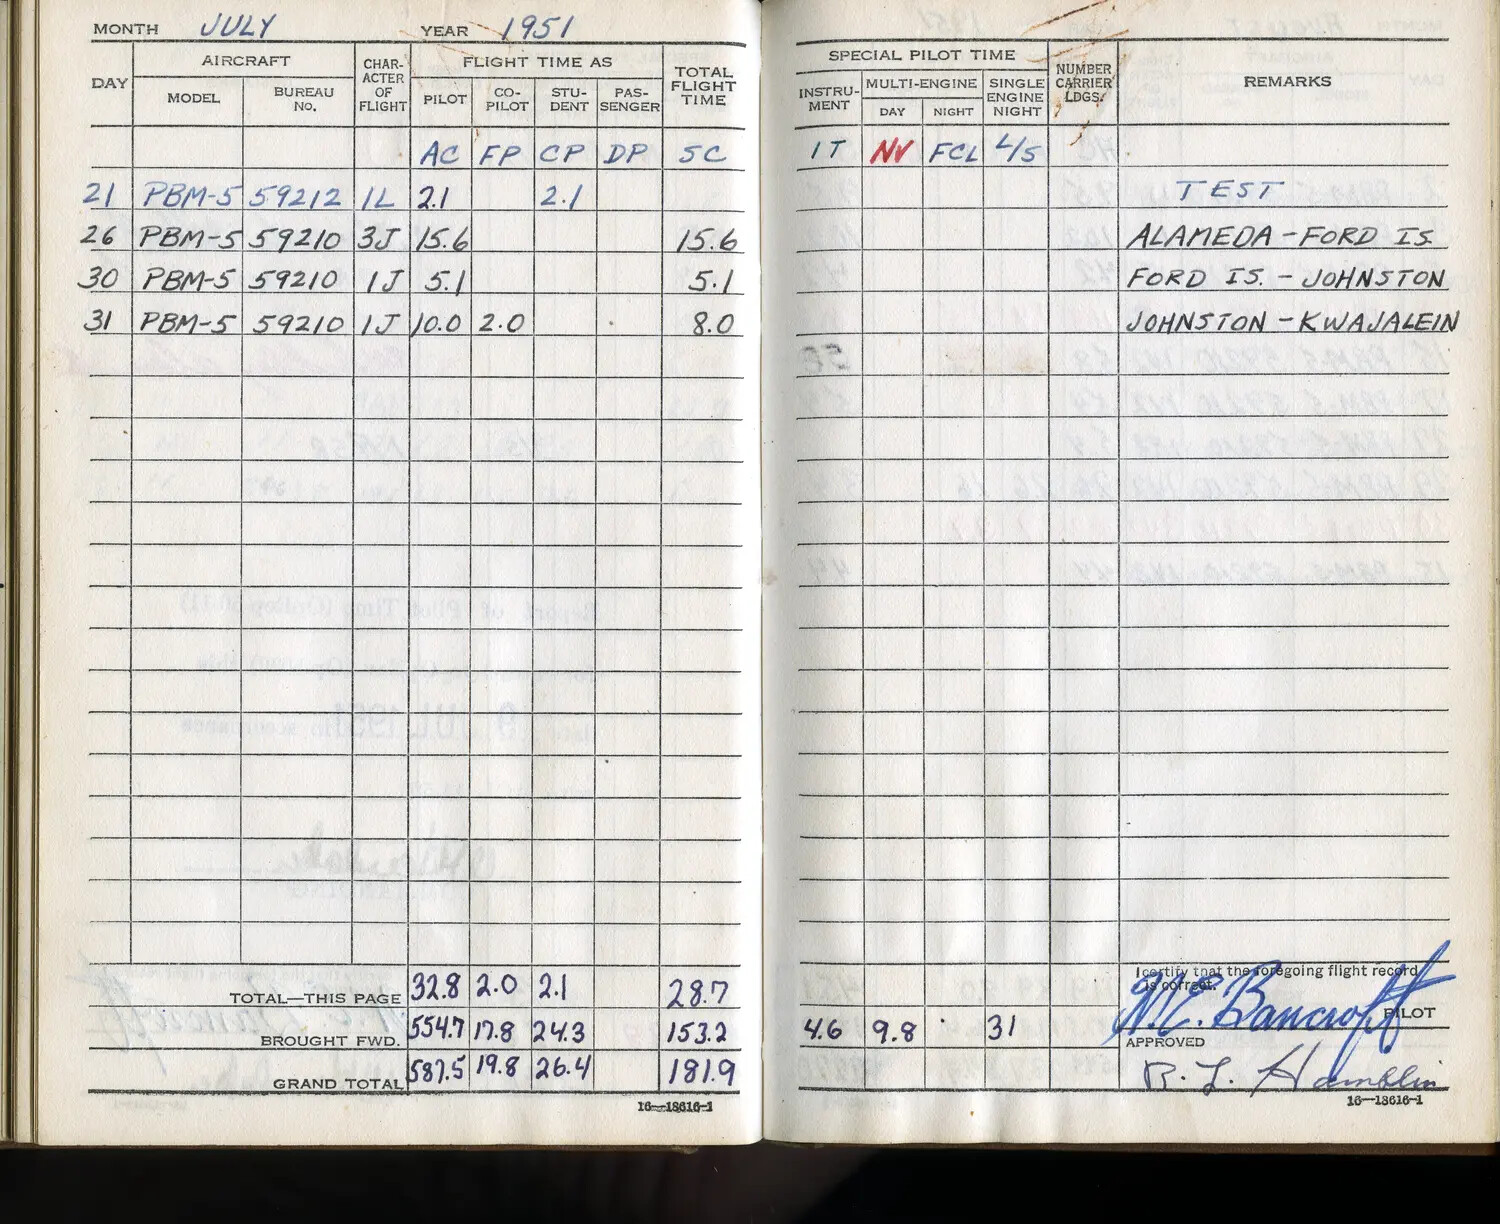 MONTH JULY YEAR 1951
DAY AIRCRAFT CHAR-ACTER OF FLIGHT FLIGHT TIME AS TOTAL FLIGHT TIME
MODEL BUREAU No. PILOT CO-PILOT STU-DENT PAS-SENGER
AC FP CP DP SC
21 PBM-5 59212 1L 2.1 2.1
26 PBM-5 59210 3J 15.6 15.6
30 PBM-5 59210 1J 5.1 5.1
31 PBM-5 59210 1J 10.0 2.0 8.0
TOTAL—THIS PAGE 32.8 2.0 2.1 28.7
BROUGHT FWD. 554.7 17.8 24.3 153.2
GRAND TOTAL 587.5 19.8 26.4 181.9
16—18616-1
SPECIAL PILOT TIME NUMBER CARRIER LDGS. REMARKS
INSTRU-MENT MULTI-ENGINE SINGLE ENGINE NIGHT
DAY NIGHT
IT NV FCL L/S
TEST
ALAMEDA - FORD IS.
FORD IS. - JOHNSTON
JOHNSTON - KWAJALEIN
I certify that the foregoing flight record
is correct.
N.E. Bancroft PILOT
4.6 9.8 31
APPROVED
R. L. Hamblin
16—18616-1